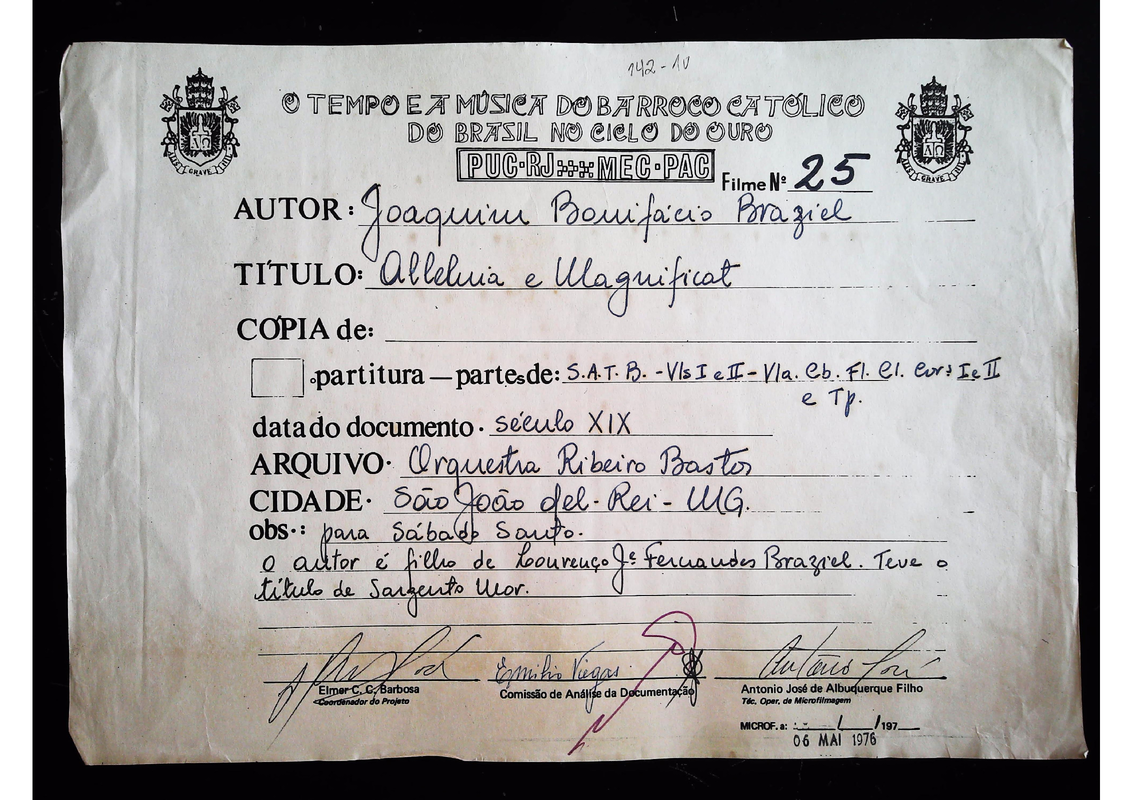 142-10
O TEMPO E A MÚSICA DO BARROCO CATÓLICO
DO BRASIL NO CICLO DO OURO
PUC·RJ MEC·PAC
Filme Nº 25
AUTOR: Joaquim Bonifácio Braziel
TÍTULO: Alleluia e Magnificat
CÓPIA de:
partitura — partes de: S.A.T.B. - Vls I e II - Vla. Cb. Fl. Cl. Cors I e II
e Tp.
data do documento · século XIX
ARQUIVO · Orquestra Ribeiro Bastos
CIDADE · São João del-Rei - MG.
obs.: para Sábado Santo.
o autor é filho de Lourenço Je Fernandes Braziel. Teve o
título de Sargento Mor.
Emilio Viegas
Elmer C. C. Barbosa
Coordenador do Projeto
Comissão de Análise da Documentação
Antonio José de Albuquerque Filho
Téc. Oper. de Microfilmagem
MICROF. a: / /197
06 MAI 1976